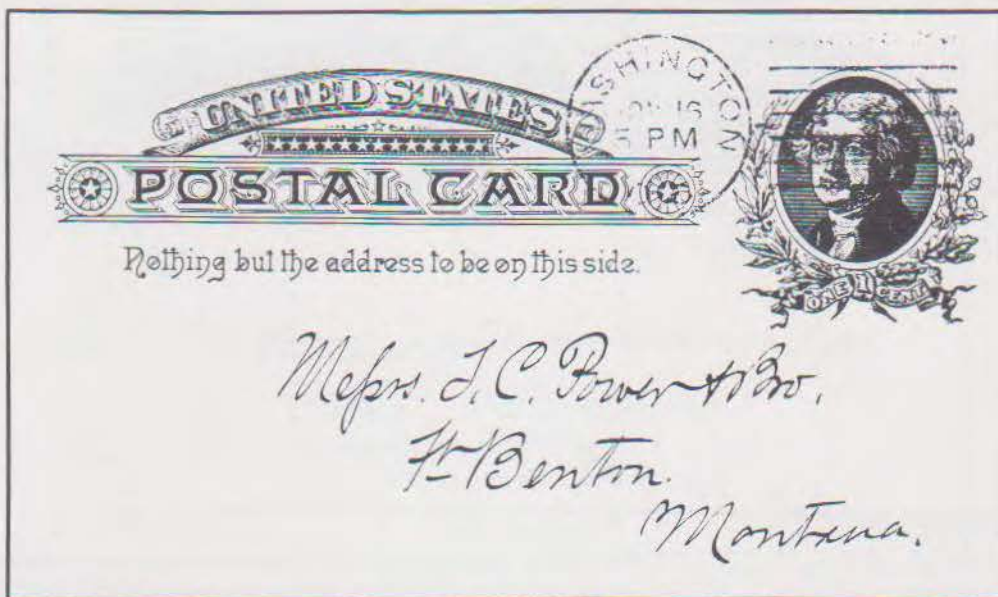 UNITED STATES
POSTAL CARD
Nothing but the address to be on this side.
WASHINGTON
16
5 PM
ONE 1 CENT
Messrs. T. C. Power & Bro.
Ft Benton.
Montana.